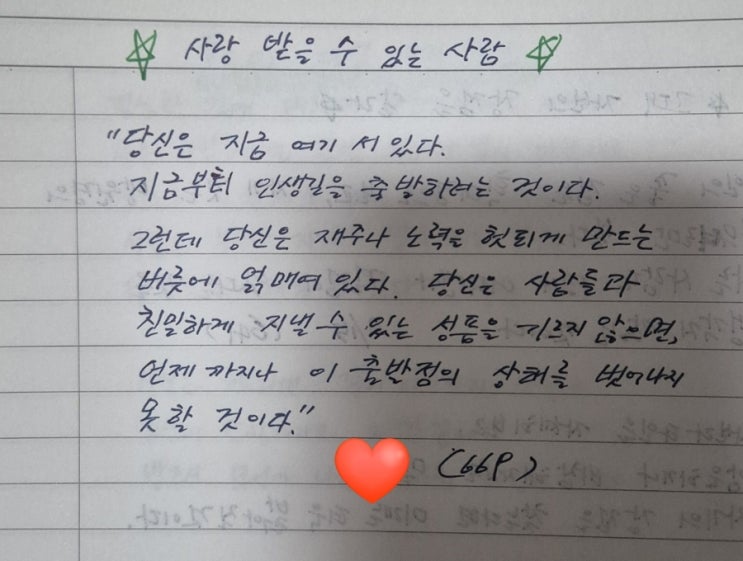 ☆ 사랑 받을 수 있는 사람 ☆
"당신은 지금 여기 서 있다.
지금부터 인생길을 출발하려는 것이다.
그런데 당신은 재주나 노력을 헛되게 만드는
버릇에 얽매여 있다. 당신은 사람들과
친밀하게 지낼 수 있는 성품을 기르지 않으면,
언제까지나 이 출발점의 상태를 벗어나지
못할 것이다."
(66P)